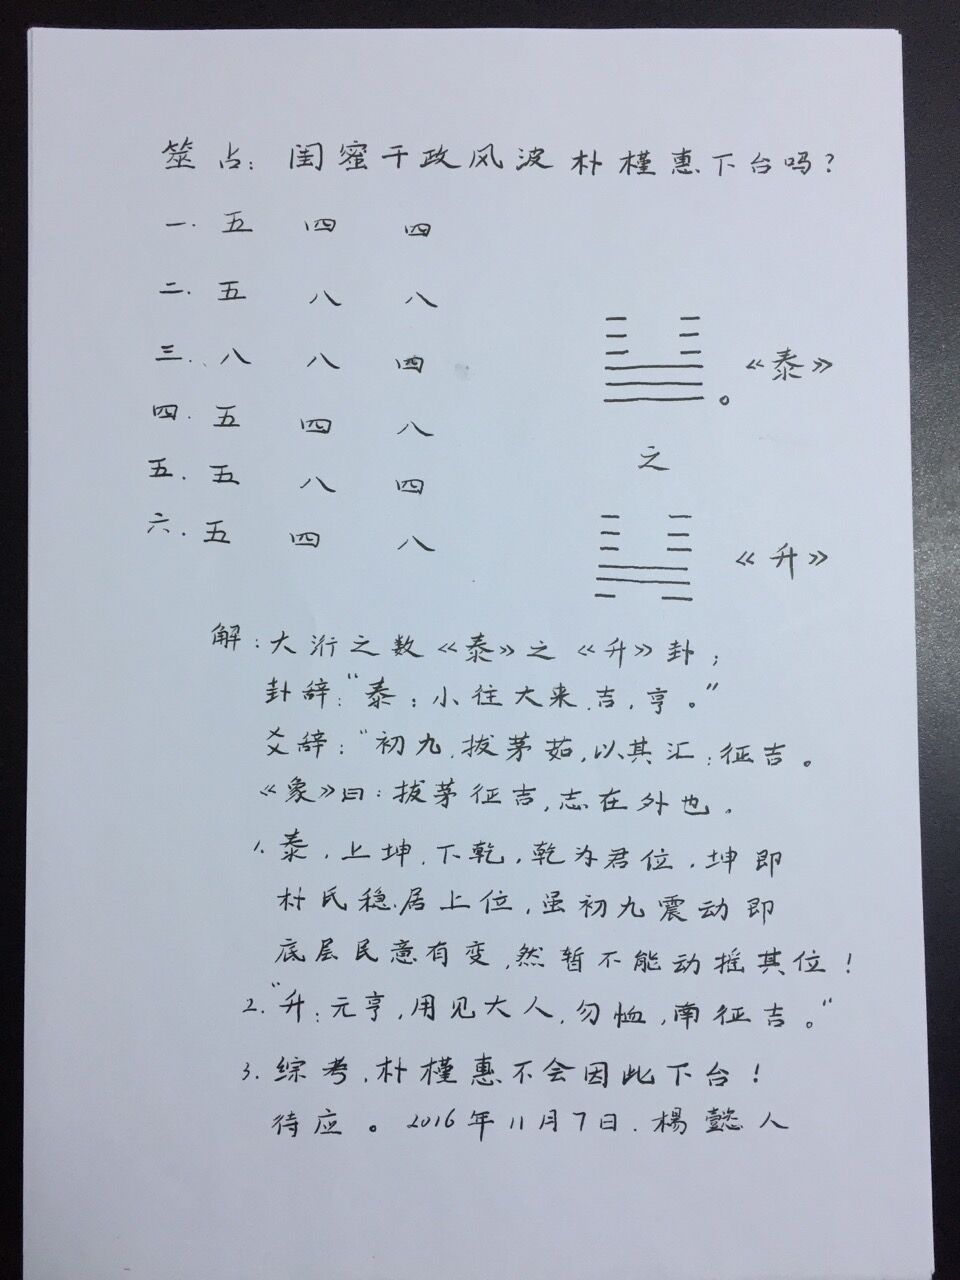 筮占：闺蜜干政风波朴槿惠下台吗？
一. 五 四 四
二. 五 八 八
三. 八 八 四
四. 五 四 八
五. 五 八 四
六. 五 四 八
《泰》
之
《升》
解：大衍之数《泰》之《升》卦；
卦辞：“泰：小往大来.吉，亨。”
爻辞：“初九.拔茅茹，以其汇：征吉。
《象》曰：拔茅征吉，志在外也。
1. 泰，上坤，下乾，乾为君位，坤即
朴氏稳居上位，虽初九震动即
底层民意有变，然暂不能动摇其位！
2.“升：元亨，用见大人，勿恤，南征吉。”
3. 综考，朴槿惠不会因此下台！
待应。2016年11月7日.楊懿人